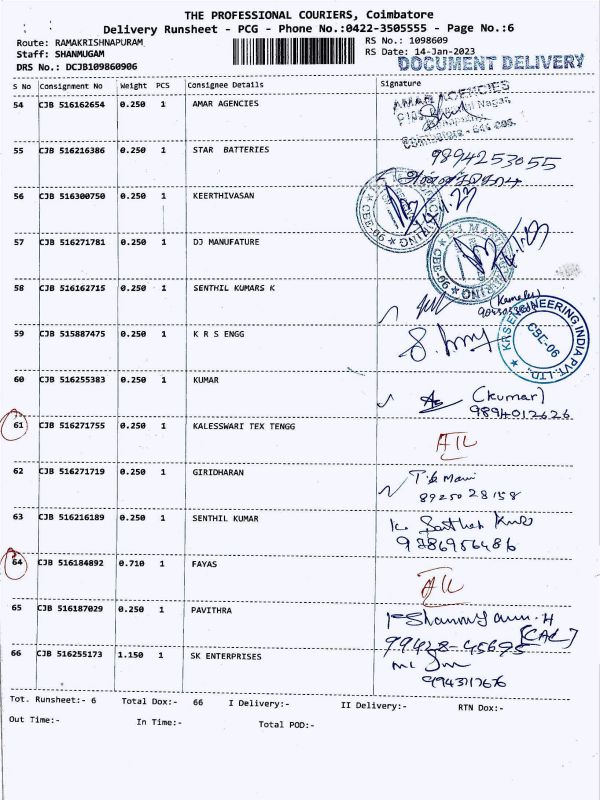 THE PROFESSIONAL COURIERS, Coimbatore
Delivery Runsheet - PCG - Phone No.:0422-3505555 - Page No.:6
Route: RAMAKRISHNAPURAM RS No.: 1098609
Staff: SHANMUGAM RS Date: 14-Jan-2023
DRS No.: DCJB109860906 DOCUMENT DELIVERY
S No Consignment No Weight PCS Consignee Details Signature
54 CJB 516162654 0.250 1 AMAR AGENCIES AMAR AGENCIES
55 CJB 516216386 0.250 1 STAR BATTERIES 9894253055
56 CJB 516300750 0.250 1 KEERTHIVASAN
57 CJB 516271781 0.250 1 DJ MANUFATURE CBE-06
58 CJB 516162715 0.250 1 SENTHIL KUMARS K
59 CJB 515887475 0.250 1 K R S ENGG KRS ENGINEERING INDIA PVT. LTD. CBE-06
60 CJB 516255383 0.250 1 KUMAR (Kumar)
9894012626
61 CJB 516271755 0.250 1 KALESSWARI TEX TENGG
62 CJB 516271719 0.250 1 GIRIDHARAN
8925028158
63 CJB 516216189 0.250 1 SENTHIL KUMAR
9386956486
64 CJB 516184892 0.710 1 FAYAS
65 CJB 516187029 0.250 1 PAVITHRA
99428-45695
66 CJB 516255173 1.150 1 SK ENTERPRISES
Tot. Runsheet:- 6 Total Dox:- 66 I Delivery:- II Delivery:- RTN Dox:-
Out Time:- In Time:- Total POD:-